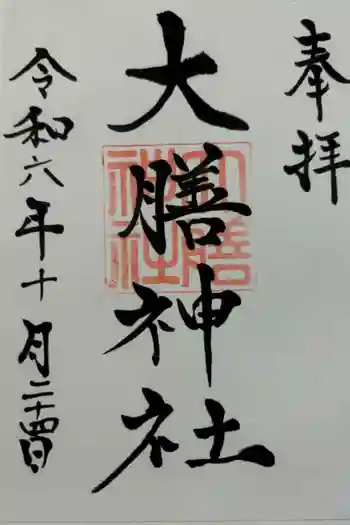 奉拝
大膳神社
大膳神社
令和六年十月二十四日